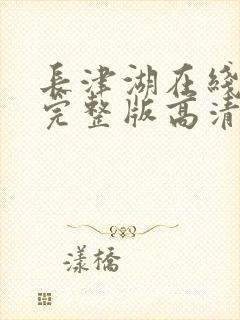 長津湖在綫
完整版高清
漾橋